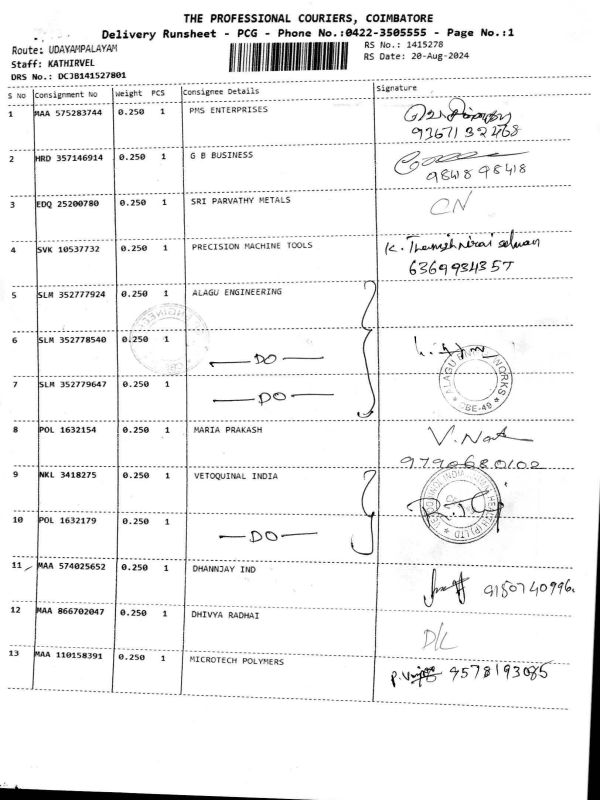 THE PROFESSIONAL COURIERS, COIMBATORE
Delivery Runsheet - PCG - Phone No.:0422-3505555 - Page No.:1
Route: UDAYAMPALAYAM
RS No.: 1415278
Staff: KATHIRVEL
RS Date: 20-Aug-2024
DRS No.: DCJB141527801
S No Consignment No Weight PCS Consignee Details Signature
1 MAA 575283744 0.250 1 PMS ENTERPRISES
9367132468
2 HRD 357146914 0.250 1 G B BUSINESS
9841898418
3 EDQ 25200780 0.250 1 SRI PARVATHY METALS CN
4 SVK 10537732 0.250 1 PRECISION MACHINE TOOLS K.
6369934357
5 SLM 352777924 0.250 1 ALAGU ENGINEERING
6 SLM 352778540 0.250 1
DO
ALAGU WORKS
CBE-49
7 SLM 352779647 0.250 1
DO
8 POL 1632154 0.250 1 MARIA PRAKASH V.
9790680102
9 NKL 3418275 0.250 1 VETOQUINAL INDIA
10 POL 1632179 0.250 1
DO
11 MAA 574025652 0.250 1 DHANNJAY IND
9150740996.
12 MAA 866702047 0.250 1 DHIVYA RADHAI
D/L
13 MAA 110158391 0.250 1 MICROTECH POLYMERS
9578193085